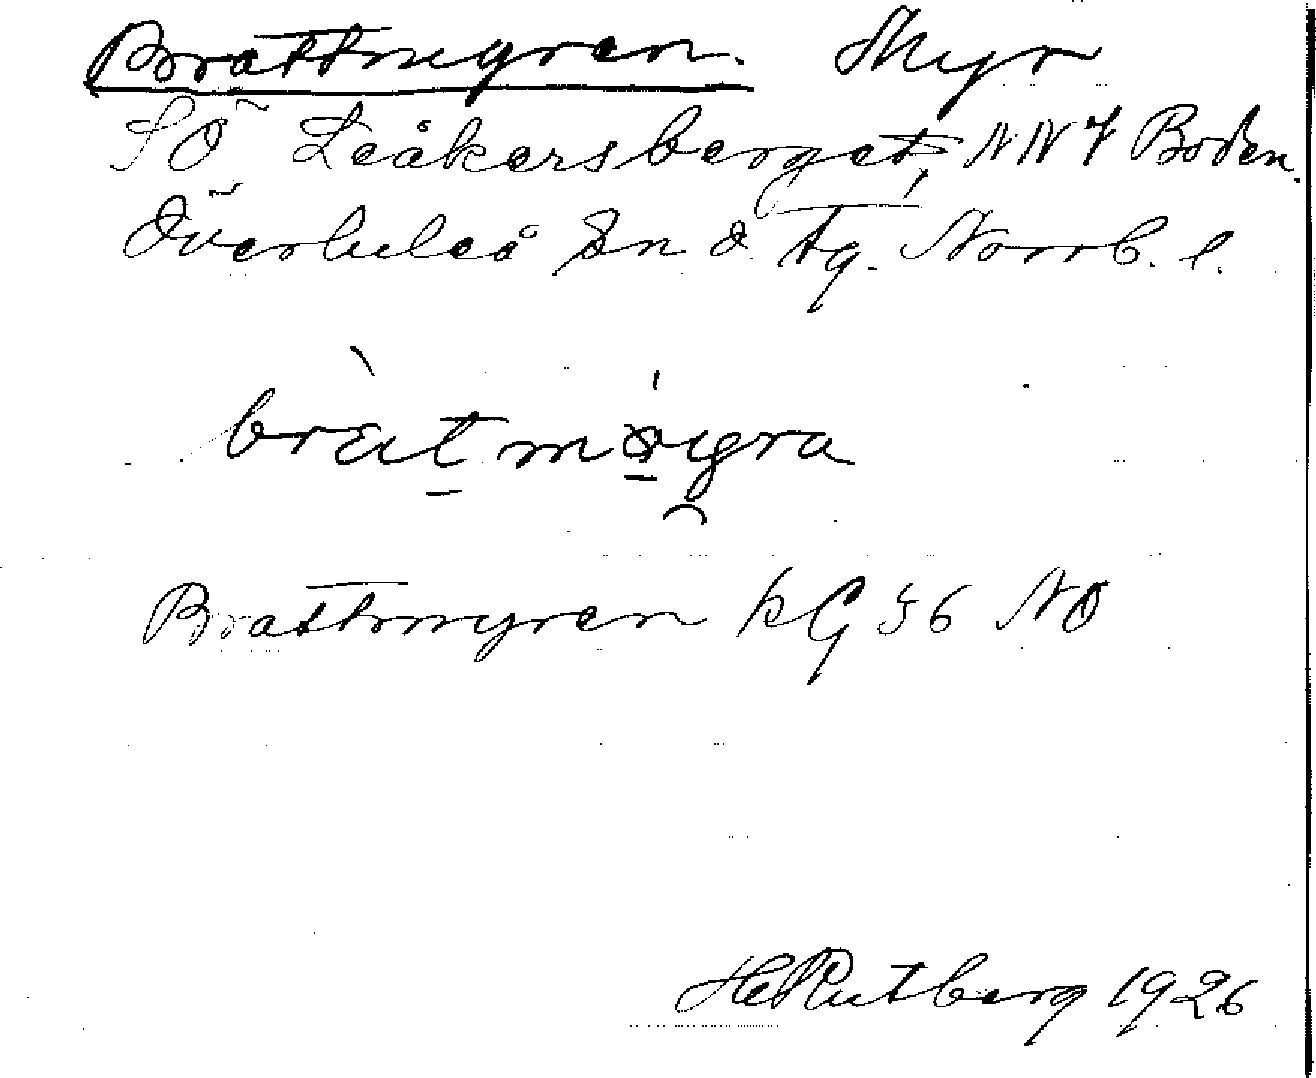 Brattmyren. Myr
SÖ Leåkersberget, NNV Boden.
Överluleå Sn o. tg. Norrb. l.
Brattmyren kG 56 NO
H Rutberg 1926